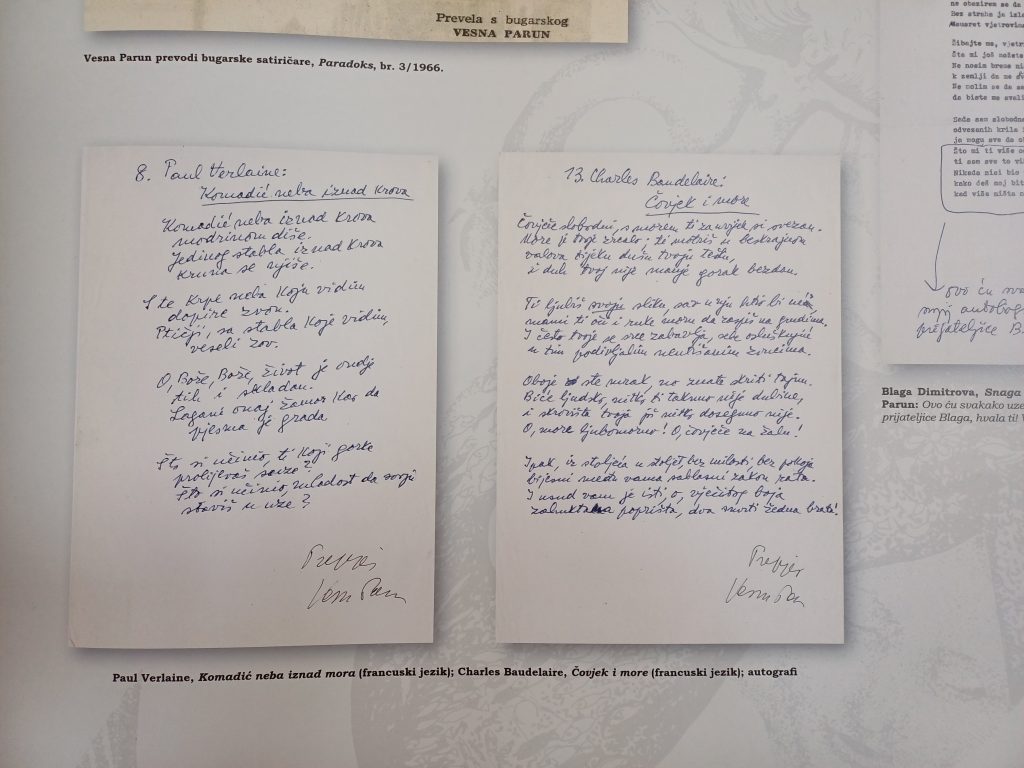 Prevela s bugarskog
VESNA PARUN
Vesna Parun prevodi bugarske satiričare, Paradoks, br. 3/1966.
8. Paul Verlaine:
Komadić neba iznad krova
Komadić neba iznad krova
modrinom diše.
Jedinog stabla iznad krova
kruna se njiše.
S te krpe neba koju vidim
dopire zvon.
Ptičji, sa stabla koje vidim,
veseli zov.
O, Bože, Bože, život je ondje
tih i skladan.
Lagani onaj žamor kao da
pjesma je grada
Što si učinio, ti koji gorke
prolijevaš suze?
Što si učinio, mladost da svoju
staviš u uze?
Prepjev
Vesna Parun
13. Charles Baudelaire:
Čovjek i more
Čovječe slobodni, s morem ti zauvijek si svezan.
More je tvoje zrcalo; ti motriš u beskrajnom
valova bijeku dušu tvoju
i duh tvoj nije manje gorak bezdan.
Ti ljubiš svoju sliku,
mami ti oči i ruke moru da zaspiš na grudima.
I često tvoje se srce zabavlja, sebe osluškujući
u tim podivljalim neutišanim zvucima.
Oboje ste mrak, no znate skriti tajnu.
Biće ljudsko, nitko ti taknuo nije dubine,
i skrovište tvoje još nitko dosegnuo nije.
O, more ljubomorno! O, čovječe na žalu!
Ipak, iz stoljeća u stoljeće, bez milosti, bez pokoja
bijesni među vama sablasni zakon rata.
I usud vam je isti, o, vječitog boja
poprišta, dva smrti žedna brata!
Prepjev
Vesna Parun
Paul Verlaine, Komadić neba iznad mora (francuski jezik); Charles Baudelaire, Čovjek i more (francuski jezik); autografi
ne obazirem se da
Bez straha je
Šibajte me, vjetr
Što mi još možete
Ne nosim breme
k zemlji da me
Ne molim se da
da biste me
Sada sam slobodna
odvezanih krila
je mogu sve da
Što mi ti više
ti sam sve to
Nikada nisi bio
kako ćeš moj
kad više ništa
ovo ću
autobiog
prijateljice B
Blaga Dimitrova, Snaga
Parun: Ovo ću svakako uze
prijateljice Blaga, hvala ti!